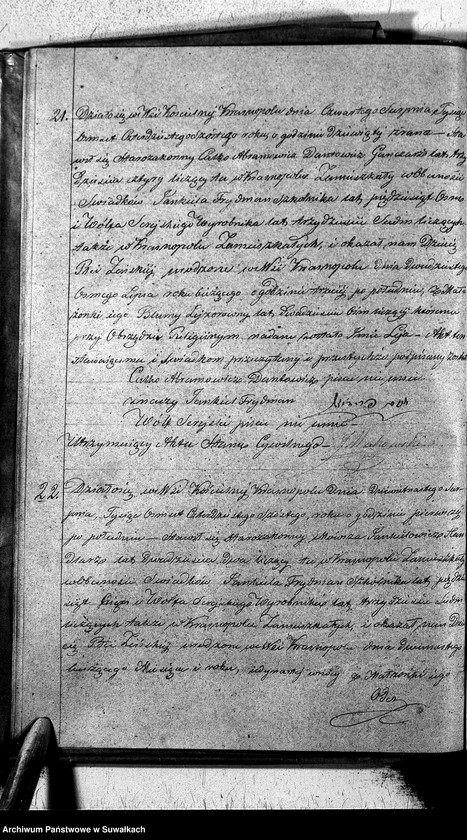 21. Działo się we Wsi Kościelnej Krasnopolu dnia Czwartego Sierpnia Tysiąc
Osmset Czterdziestego szóstego roku o godzinie dziewiątej z rana — Sta
wił się Starozakonny Lutko Abramowicz Dantowicz lat trzy
dzieści cztery liczący tu w Krasnopolu Zamieszkały w Obecności
Swiadków Jankiela Frydman Szkolnika lat pięćdziesiąt Osm
i Wólfa Serejskiego Wyrobnika lat trzydzieści Siedm liczących
także w Krasnopolu Zamieszkałych, i okazał nam Dziecię
Płci Żeńskiej urodzone w Wsi Krasnopolu dnia Dwudziestego
Osmego Lipca roku bieżącego o godzinie trzeciej po południu, z
żonki iego Blumy Leyzorowny lat dwadzieścia Osm liczącej któremu
przy Obrzędzie Religijnym nadane zostało Imie Leja — Akt ten
Stawającemu i świadkom przeczytany a przez tychże podpisany został
Lutko Abramowicz Dantowicz pisać nie umie
Jankiel Frydman
Wólf Serejski pisać nie umie —
Utrzymujący Akta Stanu Cywilnego —
22. Działo się we Wsi Kościelnej Krasnopolu Dnia Dziewiętnastego Sier
pnia, Tysiąc Osmset Czterdziestego Szóstego, roku o godzinie pierwszej
po południu — Stawił się Starozakonny Jankielowicz Han
dlarz lat Dwadzieścia Dwa liczący tu w Krasnopolu Zamieszkały
w Obecności Swiadków Jankiela Frydman Szkolnika lat pięćdzie
siąt i Wolfa Serejskiego Wyrobników lat trzydzieści Siedm
liczących także w Krasnopolu Zamieszkałych, i okazał nam Dzie
cię Płci Żeńskiej urodzone w Wsi Krasnopolu dnia
bieżącego Miesiąca i roku, z Małżonki iego
Archiwum Państwowe w Suwałkach